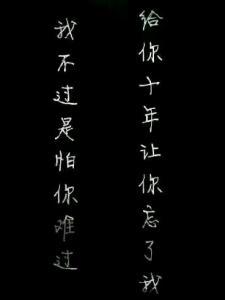 给你十年让你忘了我
我不过是怕你难过